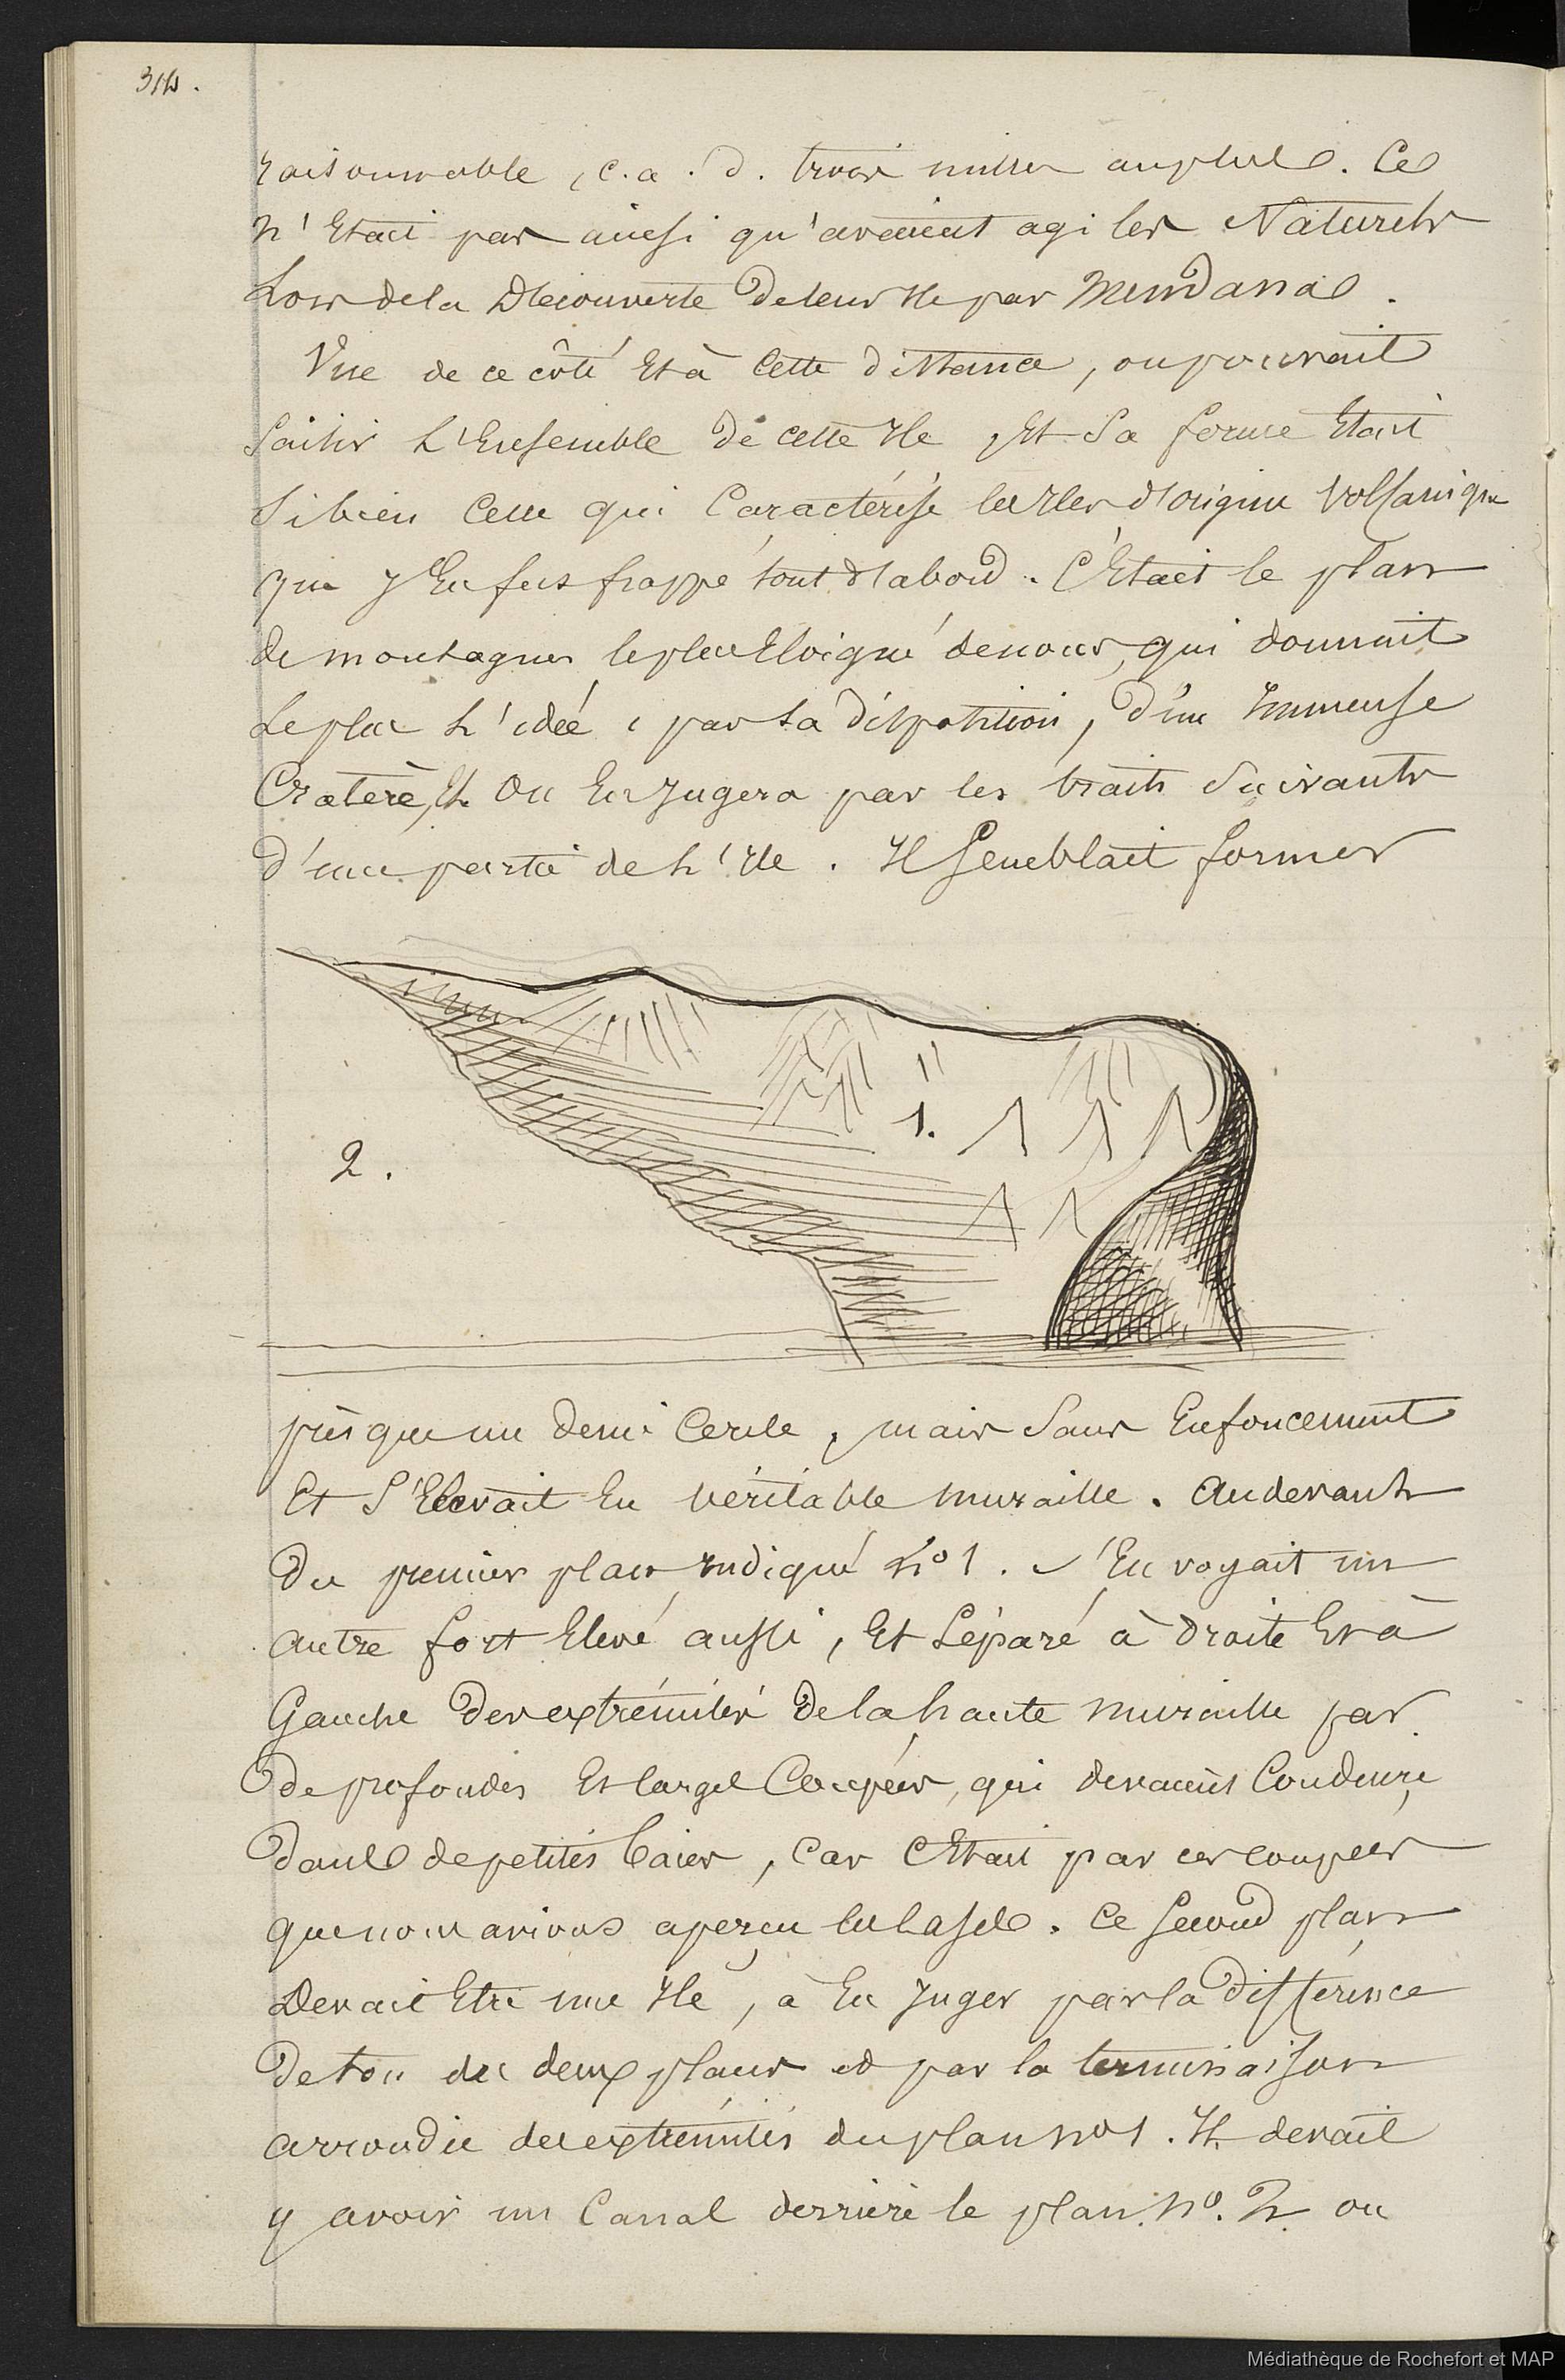 raisonnable, c.a.d. trois milles au plus. Ce
n'Etait pas ainsi qu'avaient agi les Naturels
Lors de la Découverte de leur Ile par Mendana.
Vue de ce côté Et à Cette distance, on pouvait
Saisir L'Ensemble de cette Ile, Et Sa forme Etait
Si bien Celle qui Caractérise les Iles d'origine Volcanique
que J'En fus frappé tout d'abord. C'Etait le plan
de montagnes le plus Eloigné de nous, qui donnait
Le plus L'idée, par sa disposition, d'un Immense
Cratère, Et On En Jugera par les traits Suivants
d'une partie de L'Ile. Il Semblait former
1.
2.
presque un demi Cercle, mais Sans Enfoncement
Et S'Elevait En véritable muraille. Au devant
Du premier plan, Indiqué No 1. s'En voyait un
autre fort Elevé aussi, Et Séparé à Droite Et à
Gauche Des extrémités De la haute muraille par
De profondes Et larges Coupées, qui devaient Conduire
Dans de petites baies, Car C'Etait par ces coupées
que nous avions aperçu les cases. Ce Second plan
Devait Etre une Ile, à En Juger par la Différence
De ton des deux plans et par la terminaison
arrondie des extrémités du plan No 1. Il devait
y avoir un Canal derrière le plan No. 2 ou
Médiathèque de Rochefort et MAP